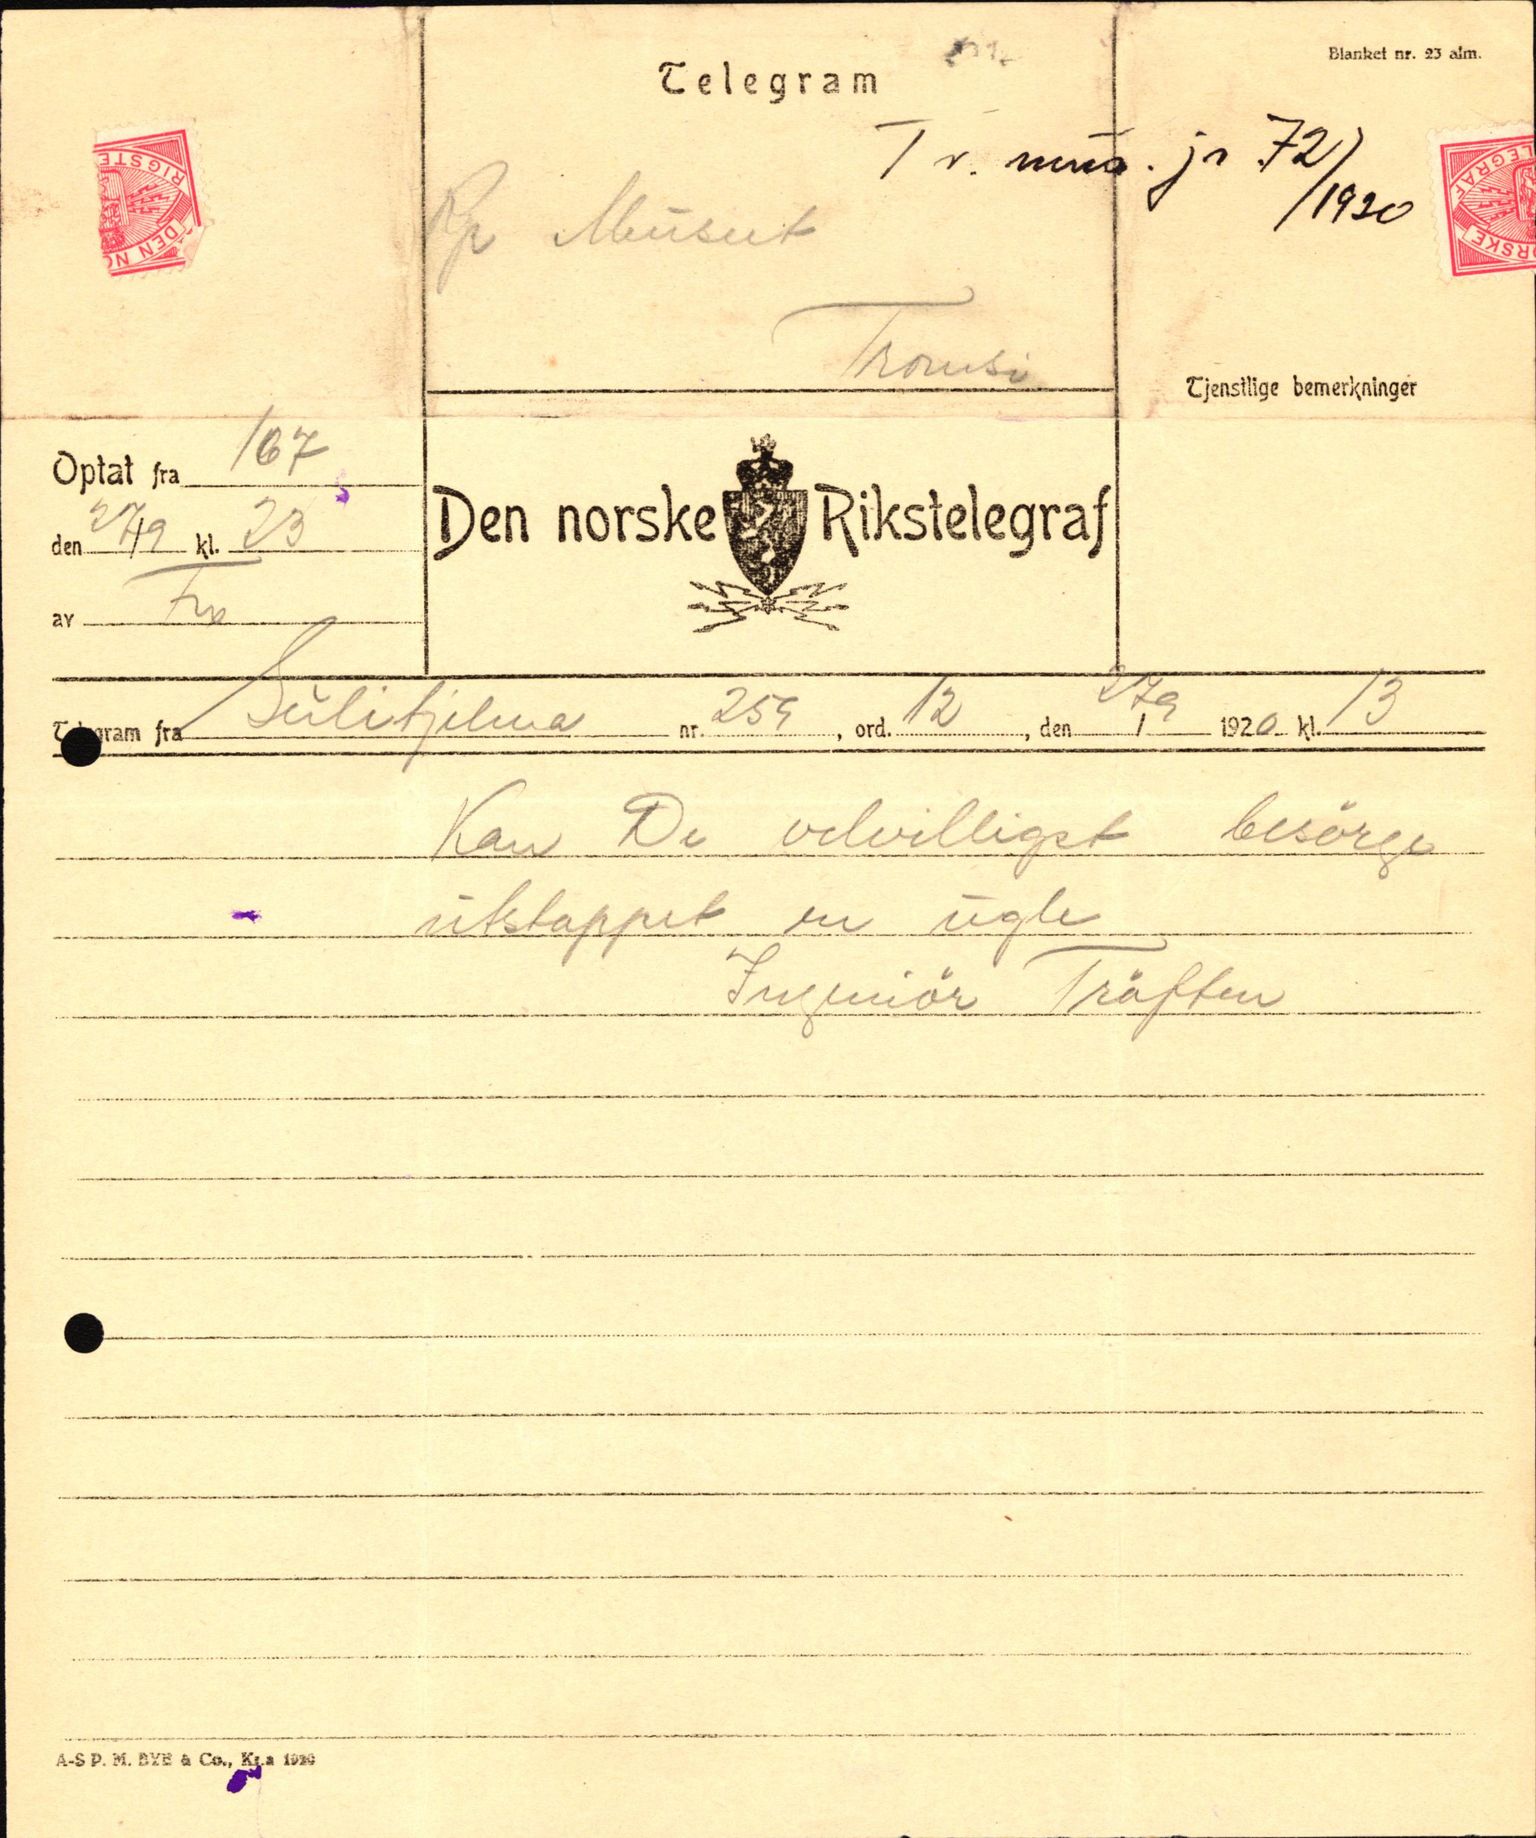 Blanket nr. 23 alm.
Telegram
Tr. mus. jr 72/
/1920
Rp Museet
Tromsö
RIGSTE
DEN NO
LEGRAF
ORSKE
Tjenstlige bemerkninger
Optat fra 167
den 27/9 kl. 23
av
Den norske Rikstelegraf
Telegram fra Sulitjelma nr. 259, ord. 12, den 27/9 1920 kl. 13
Kan De velvilligst besörge
utstoppet en ugle
Ingeniör Tröften
A-S P. M. BYE & Co., Kr.a 1920